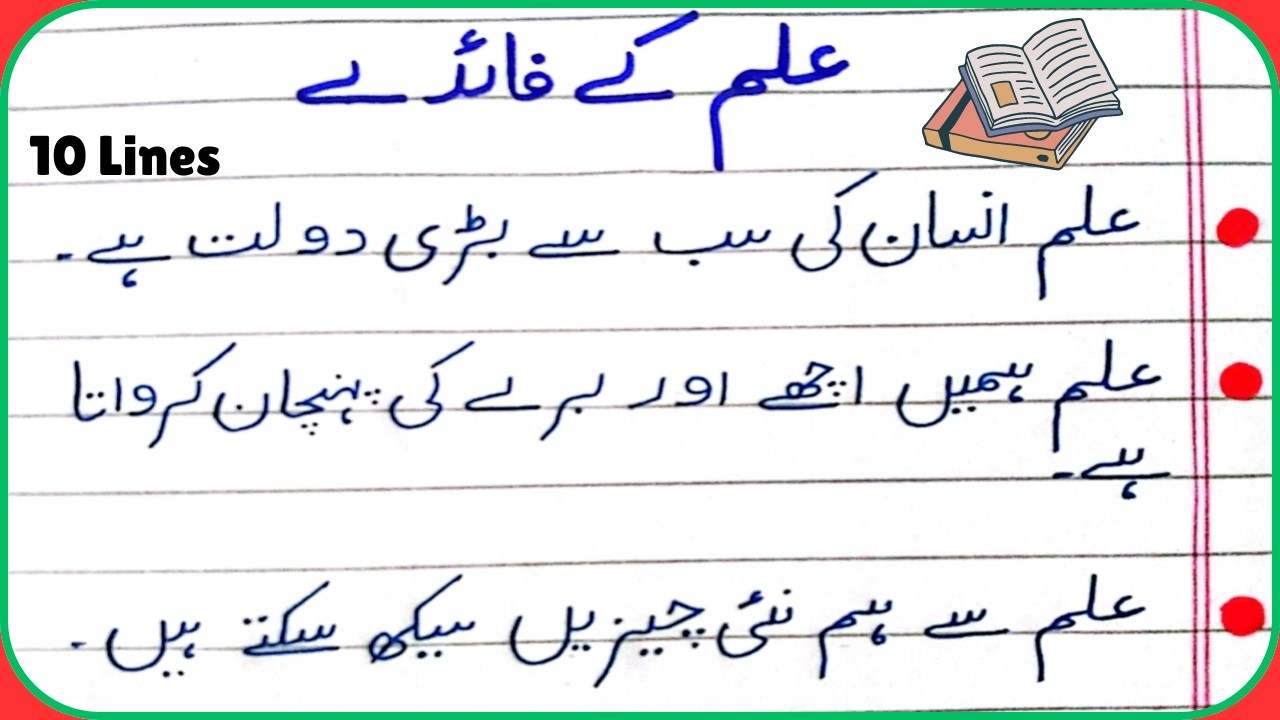 علم کے فائدے
10 Lines
علم انسان کی سب سے بڑی دولت ہے۔
علم ہمیں اچھے اور برے کی پہنچان کرواتا
ہے۔
علم سے ہم نئی چیزیں سیکھ سکتے ہیں۔